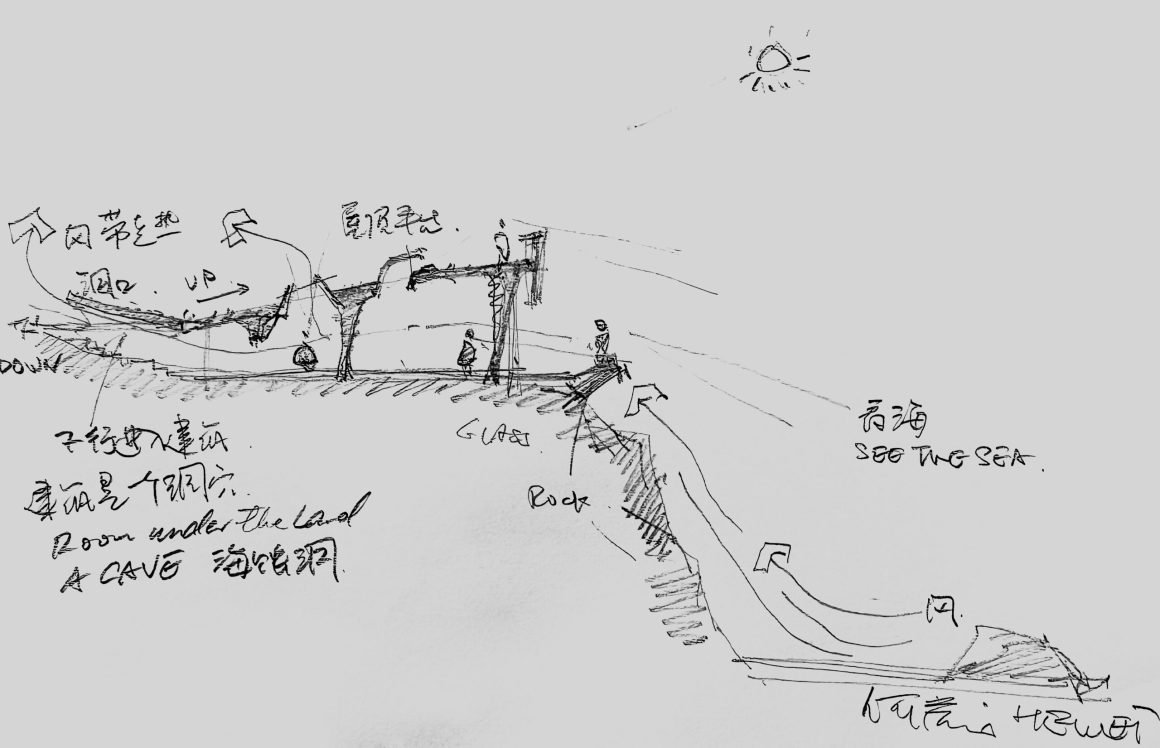 风带走热
屋顶平台.
洞口. UP
DOWN
下行进入建筑.
建筑是一个洞穴.
Room under the Land
A CAVE 海蚀洞.
GLASS.
Rock
看海
SEE THE SEA.
风.
HEWEI